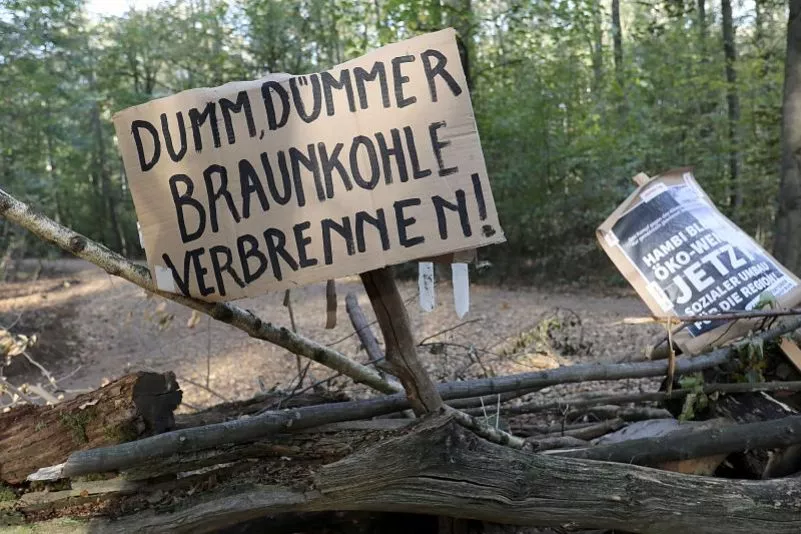 DUMM, DÜMMER
BRAUNKOHLE
VERBRENNEN!
HAMBI BL
ÖKO-WE
JETZ
SOZIALER UMBAU
FÜR DIE REGION